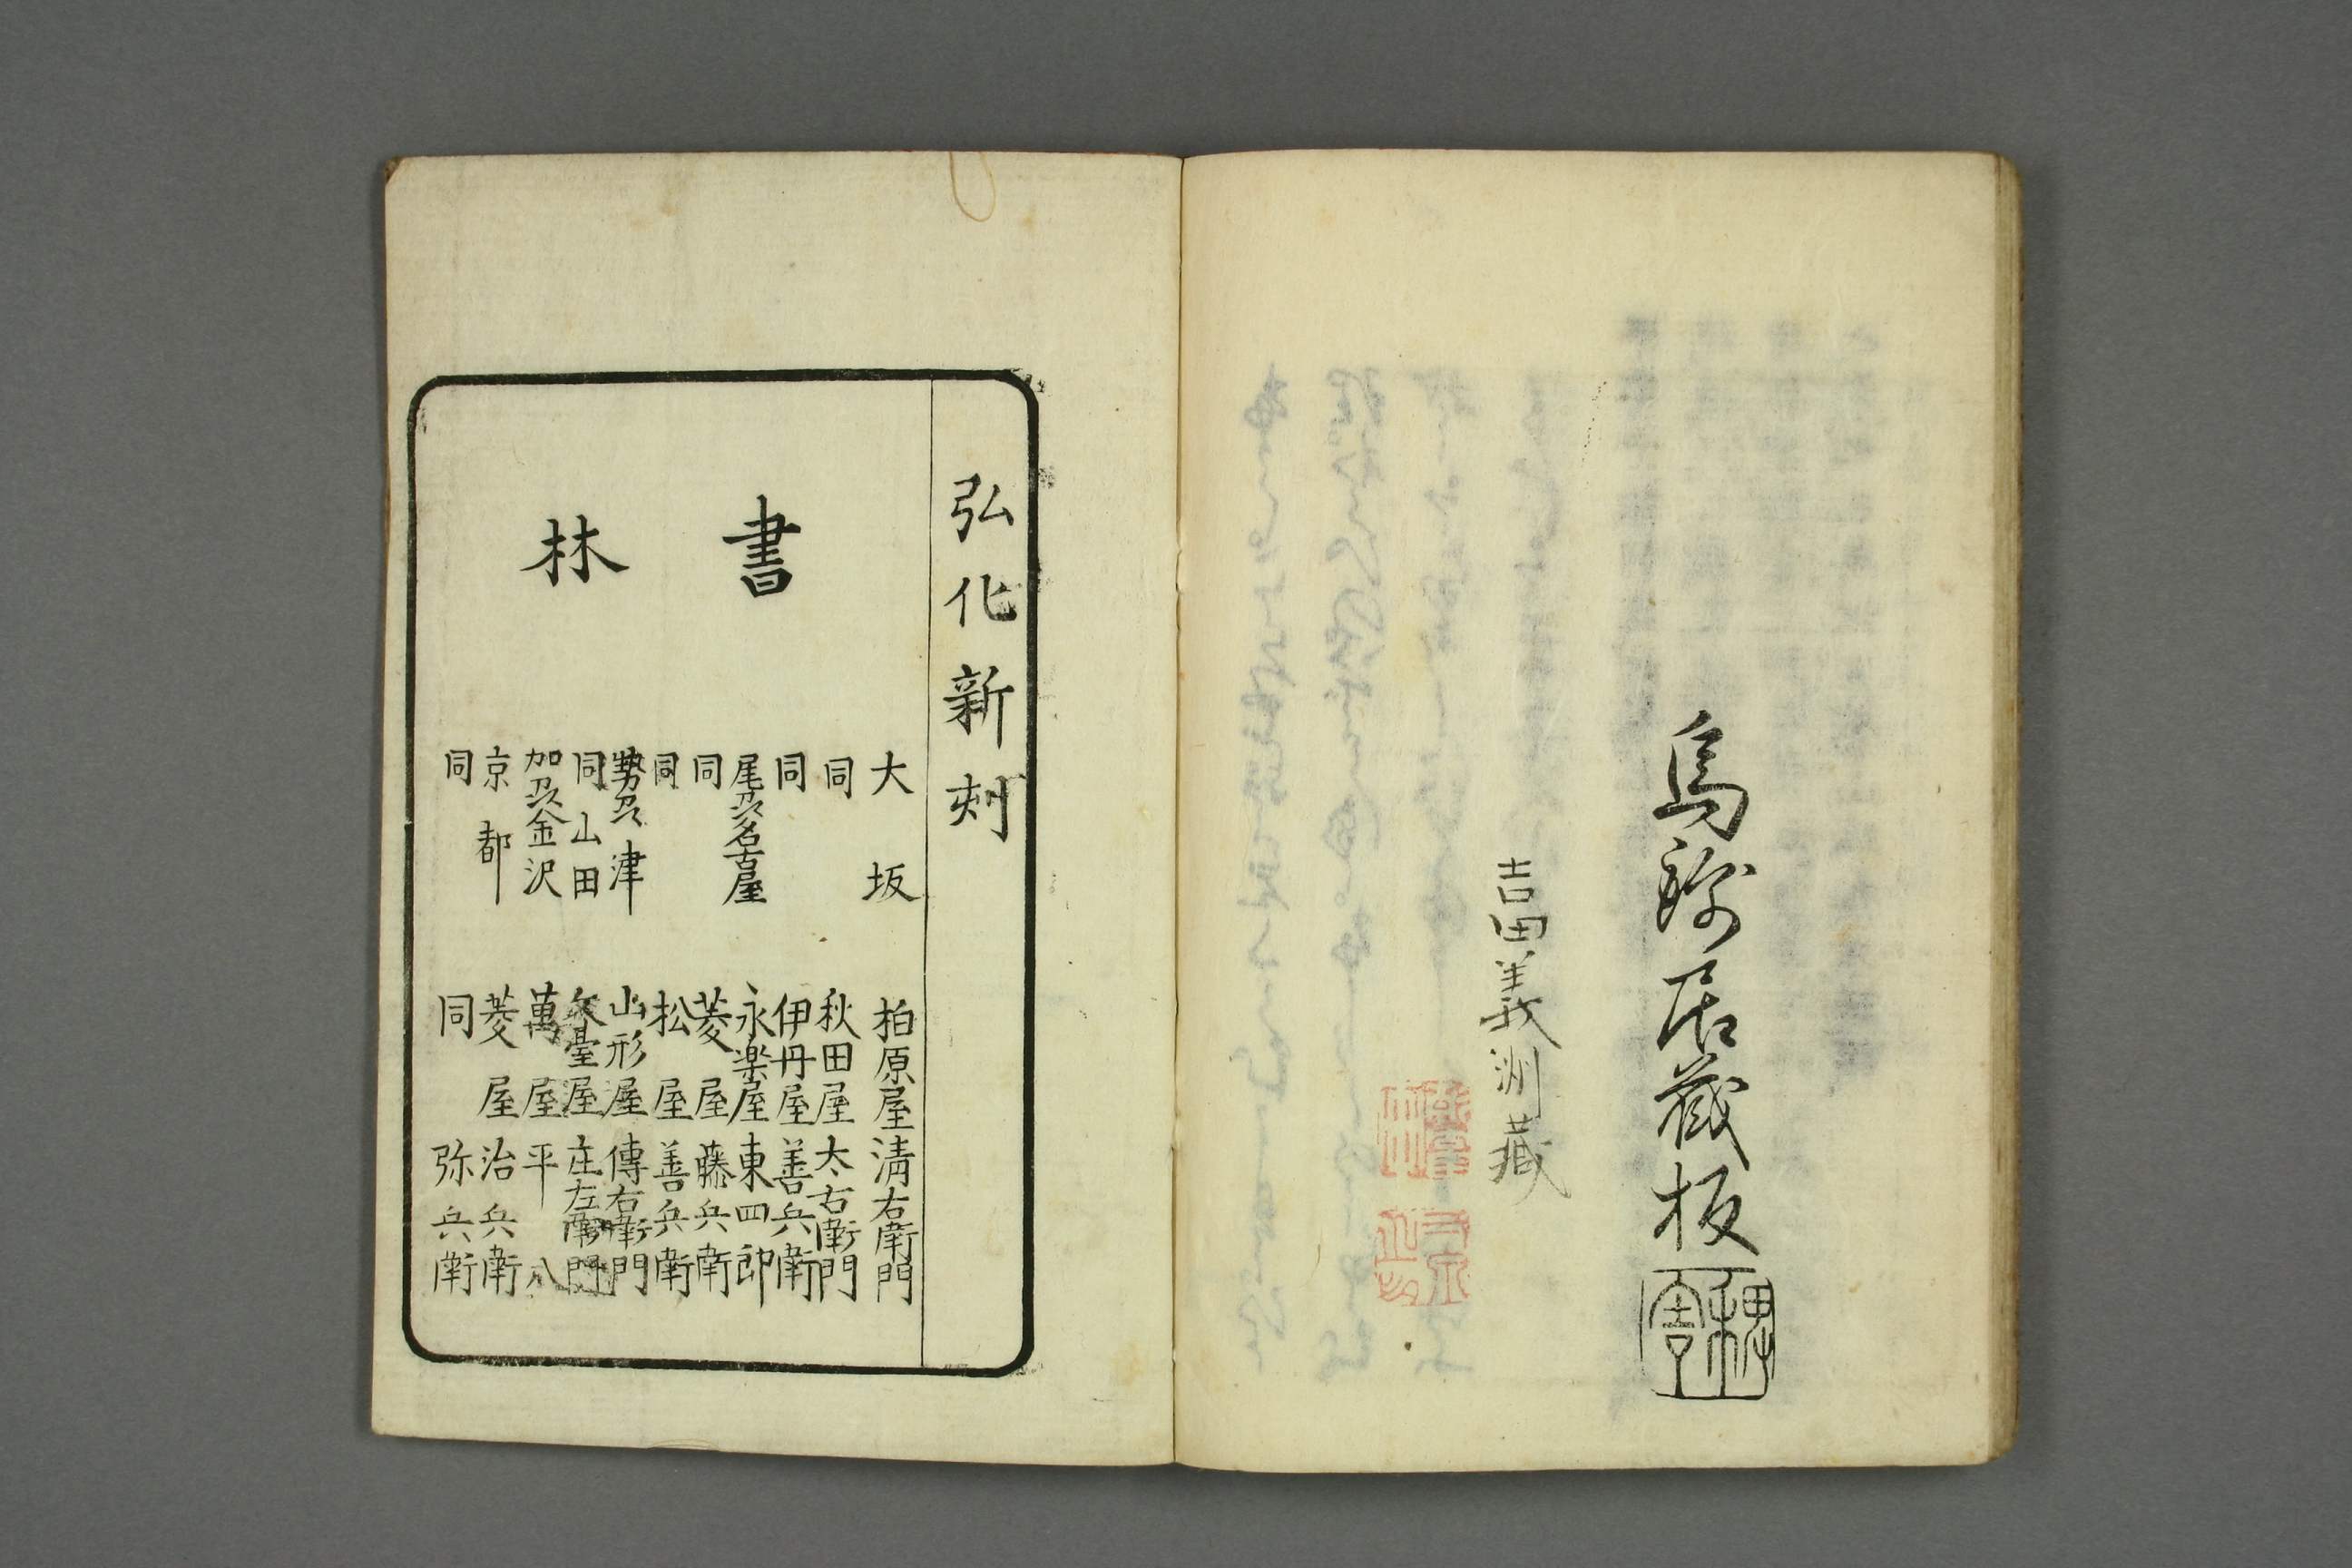 居蔵板
吉田義洲藏
弘化新刻
書林
大坂 柏原屋清右衛門
同 秋田屋太右衛門
同 伊丹屋善兵衛
尾刕名古屋 永楽屋東四郎
同 菱屋藤兵衛
同 松屋善兵衛
勢刕津 山形屋傳右衛門
同山田 臺屋庄左衛門
加刕金沢 萬屋平八
京都 菱屋治兵衛
同 同 弥兵衛